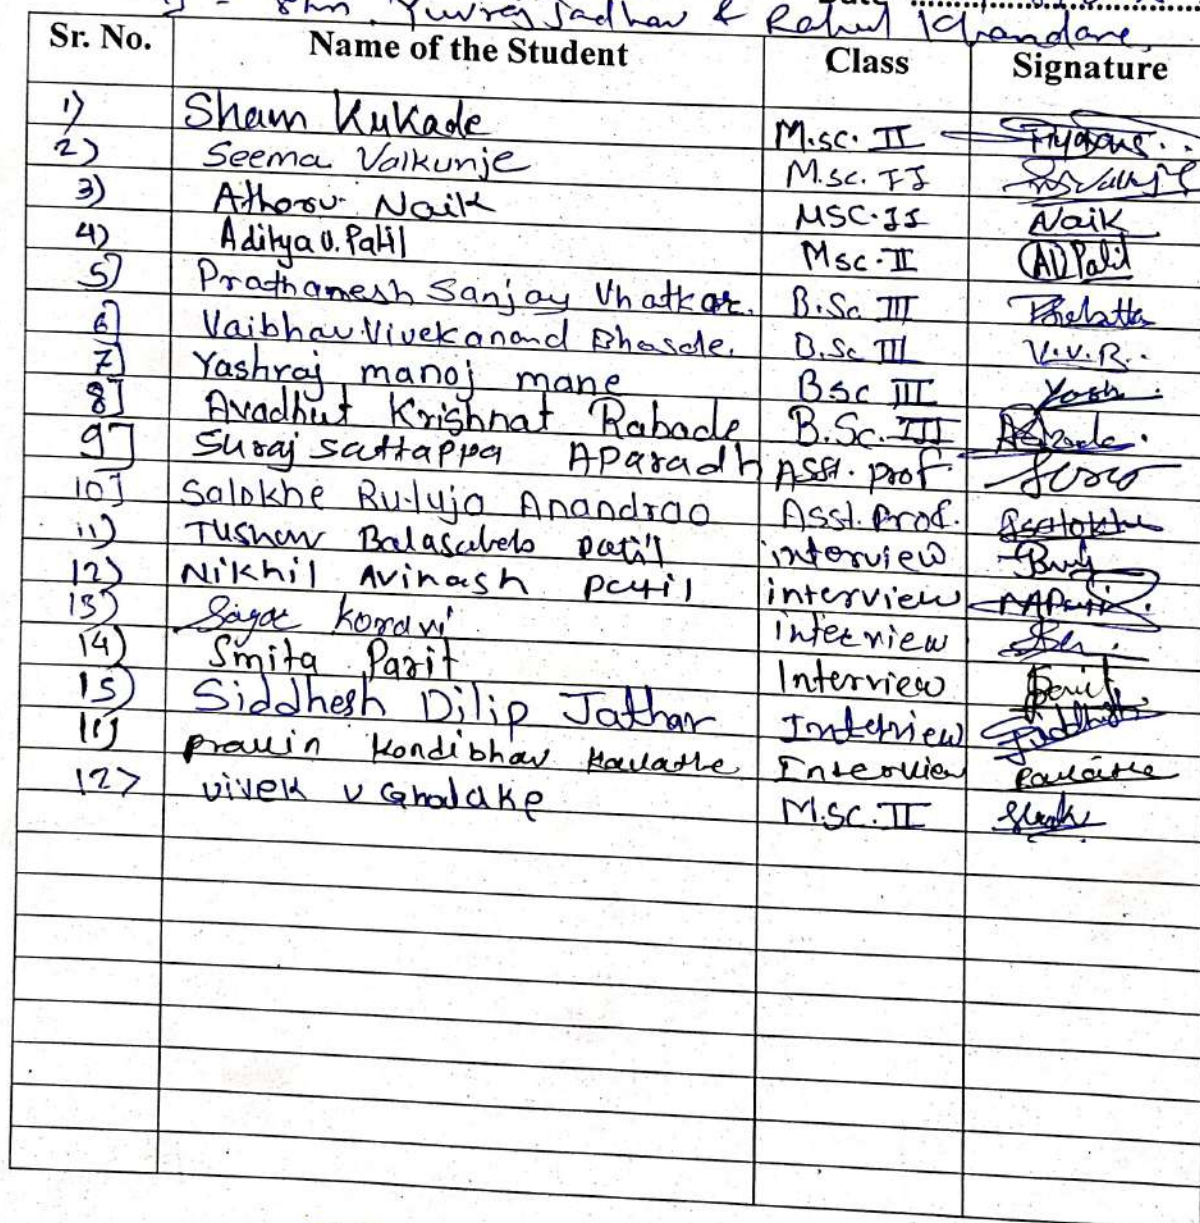 Shri. Yuvraj Jadhav & Rahul Khandare.
Sr. No. Name of the Student Class Signature
1) Sham Kukade M.sc. II
2) Seema Valkunje M.sc. II
3) Atharv Naik MSC.II Naik
4) Aditya U. Patil Msc.II AD Patil
5] Prathamesh Sanjay Vhatkar. B.Sc III
6] Vaibhav Vivekanand Bhosale. B.Sc III V.V.B..
7] Yashraj manoj mane Bsc III Yash.
8] Avadhut Krishnat Rabade B.Sc. III
9] Suraj sattappa Aparadh Asst. prof
10] Salokhe Rutuja Anandrao Asst. Prof. Salokhe
11) Tushar Balasaheb patil interview
12) Nikhil Avinash patil interview
13) Sagar Koravi interview
14) Smita Parit Interview Parit
15) Siddhesh Dilip Jathar Interview Siddhesh
11) pravin Kondibhau Kavathe Interview
12> vivek v Gholake M.SC.II